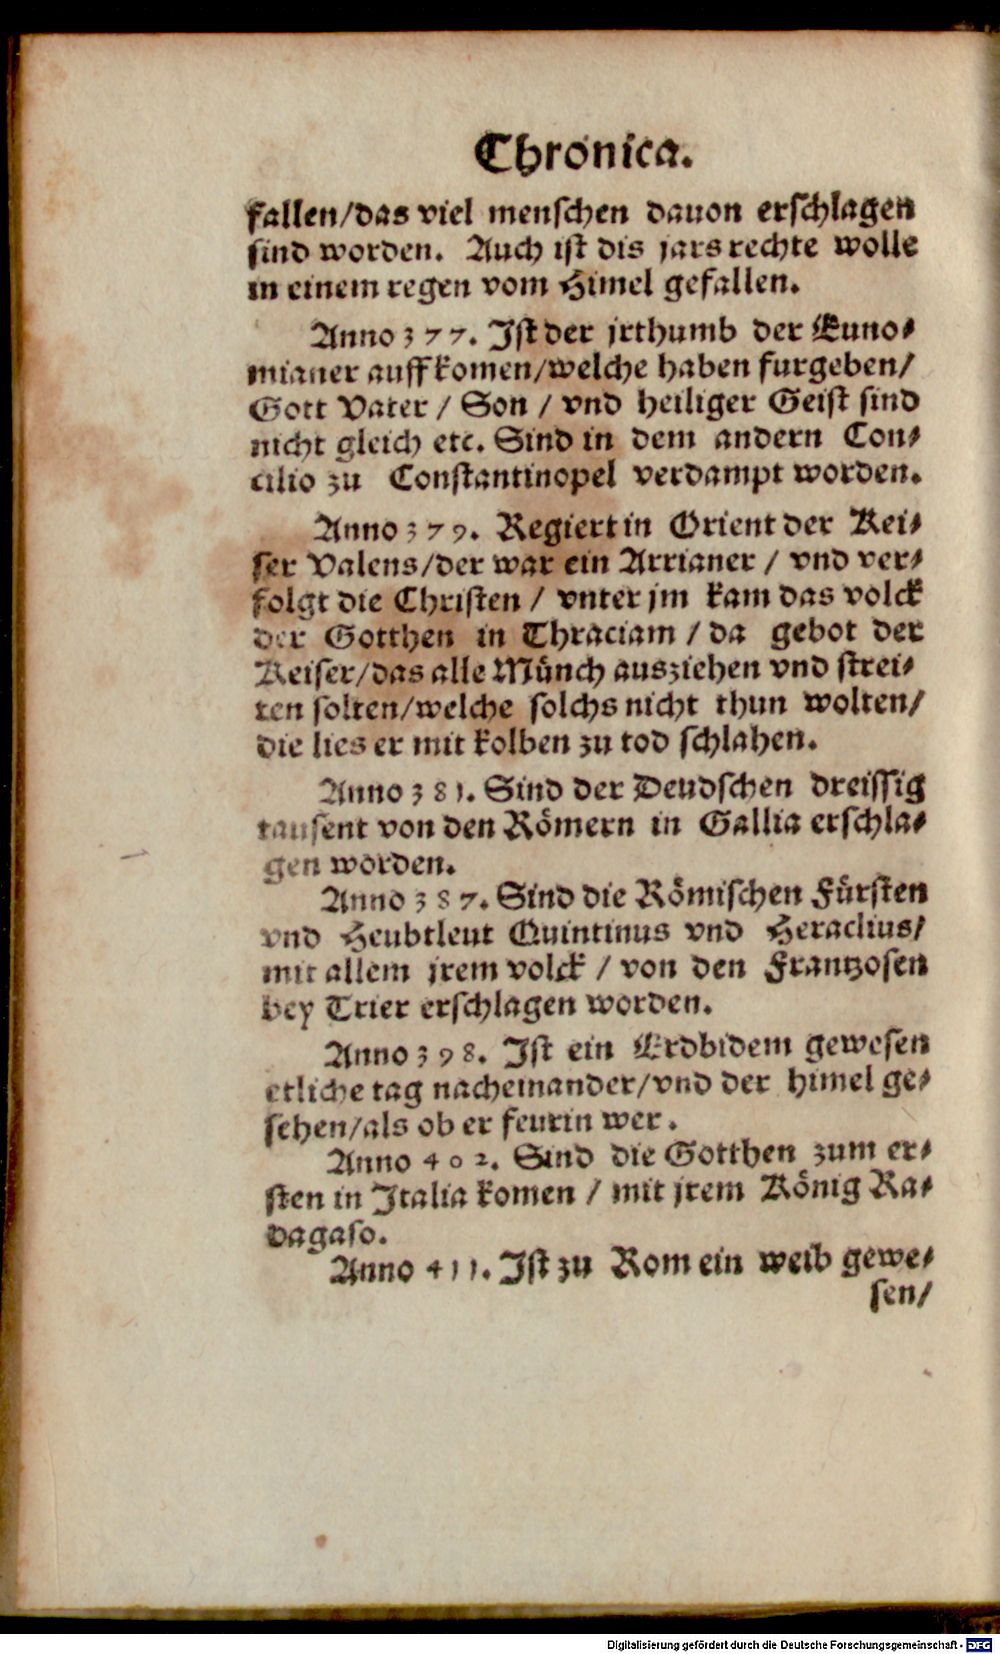 Chronica.
fallen/das viel menschen dauon erschlagen
sind worden. Auch ist dis jars rechte wolle
in einem regen vom Himel gefallen.
Anno 377. Ist der jrthumb der Euno⸗
mianer auffkomen/welche haben furgeben/
Gott Vater / Son / vnd heiliger Geist sind
nicht gleich etc. Sind in dem andern Con⸗
cilio zu Constantinopel verdampt worden.
Anno 379. Regiert in Orient der Kei⸗
ser Valens/der war ein Arrianer / vnd ver⸗
folgt die Christen / vnter jm kam das volck
der Gotthen in Thraciam / da gebot der
Keiser/das alle Münch ausziehen vnd strei⸗
ten solten/welche solchs nicht thun wolten/
die lies er mit kolben zu tod schlahen.
Anno 381. Sind der Deudschen dreissig
tausent von den Römern in Gallia erschla⸗
gen worden.
Anno 387. Sind die Römischen Fürsten
vnd Heubtleut Quintinus vnd Heraclius/
mit allem jrem volck / von den Frantzosen
bey Trier erschlagen worden.
Anno 398. Ist ein Erdbidem gewesen
etliche tag nacheinander/vnd der himel ge⸗
sehen/als ob er feurin wer.
Anno 402. Sind die Gotthen zum er⸗
sten in Italia komen / mit jrem König Ra⸗
dagaso.
Anno 411. Ist zu Rom ein weib gewe⸗
sen/
Digitalisierung gefördert durch die Deutsche Forschungsgemeinschaft - DFG